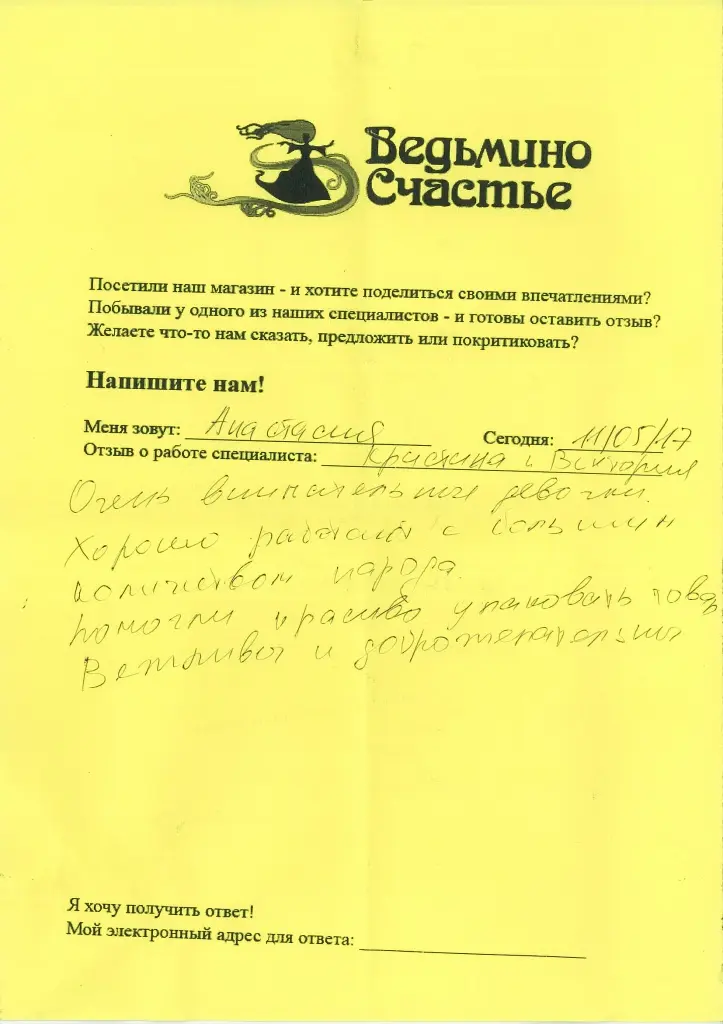 Ведьмино
Счастье
Посетили наш магазин - и хотите поделиться своими впечатлениями?
Побывали у одного из наших специалистов - и готовы оставить отзыв?
Желаете что-то нам сказать, предложить или покритиковать?
Напишите нам!
Меня зовут: Анастасия Сегодня: 11/05/17
Отзыв о работе специалиста: Кристина и Виктория
Очень внимательные девочки.
Хорошо работают с большим
количеством народа.
помогли красиво упаковать товар
Вежливы и доброжелательны
Я хочу получить ответ!
Мой электронный адрес для ответа: